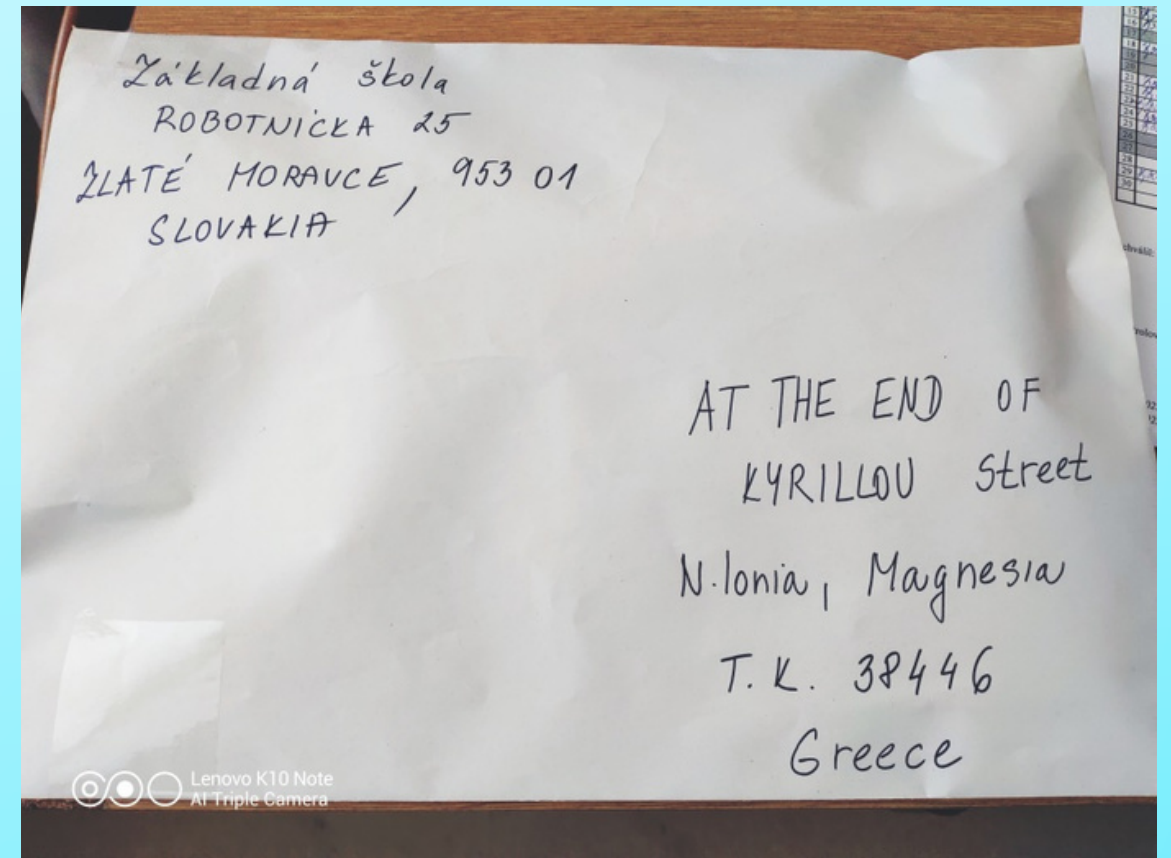 Základná škola
ROBOTNÍCKA 25
ZLATÉ MORAVCE, 953 01
SLOVAKIA
AT THE END OF
KYRILLOU Street
N.Ionia, Magnesia
T.K. 38446
Greece
Lenovo K10 Note
AI Triple Camera